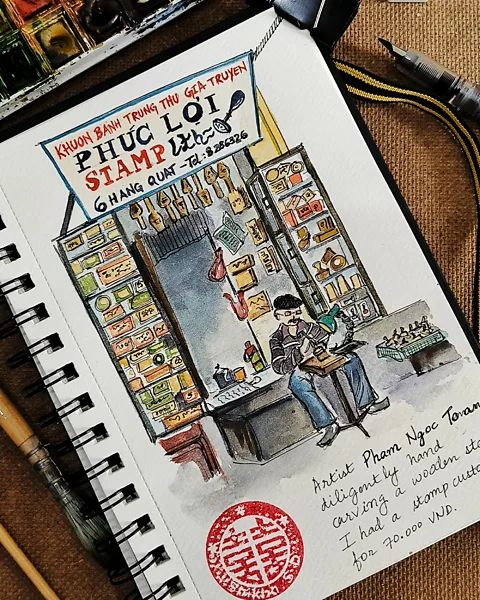 KHUÔN BÁNH TRUNG THU GIA TRUYỀN
PHÚC LỢI
STAMP はんこ
6 HANG QUAT - Tel: 8.286526
Artist Pham Ngoc Toran
diligently hand
carving a wooden sta
I had a stamp custo
for 70.000 VND.